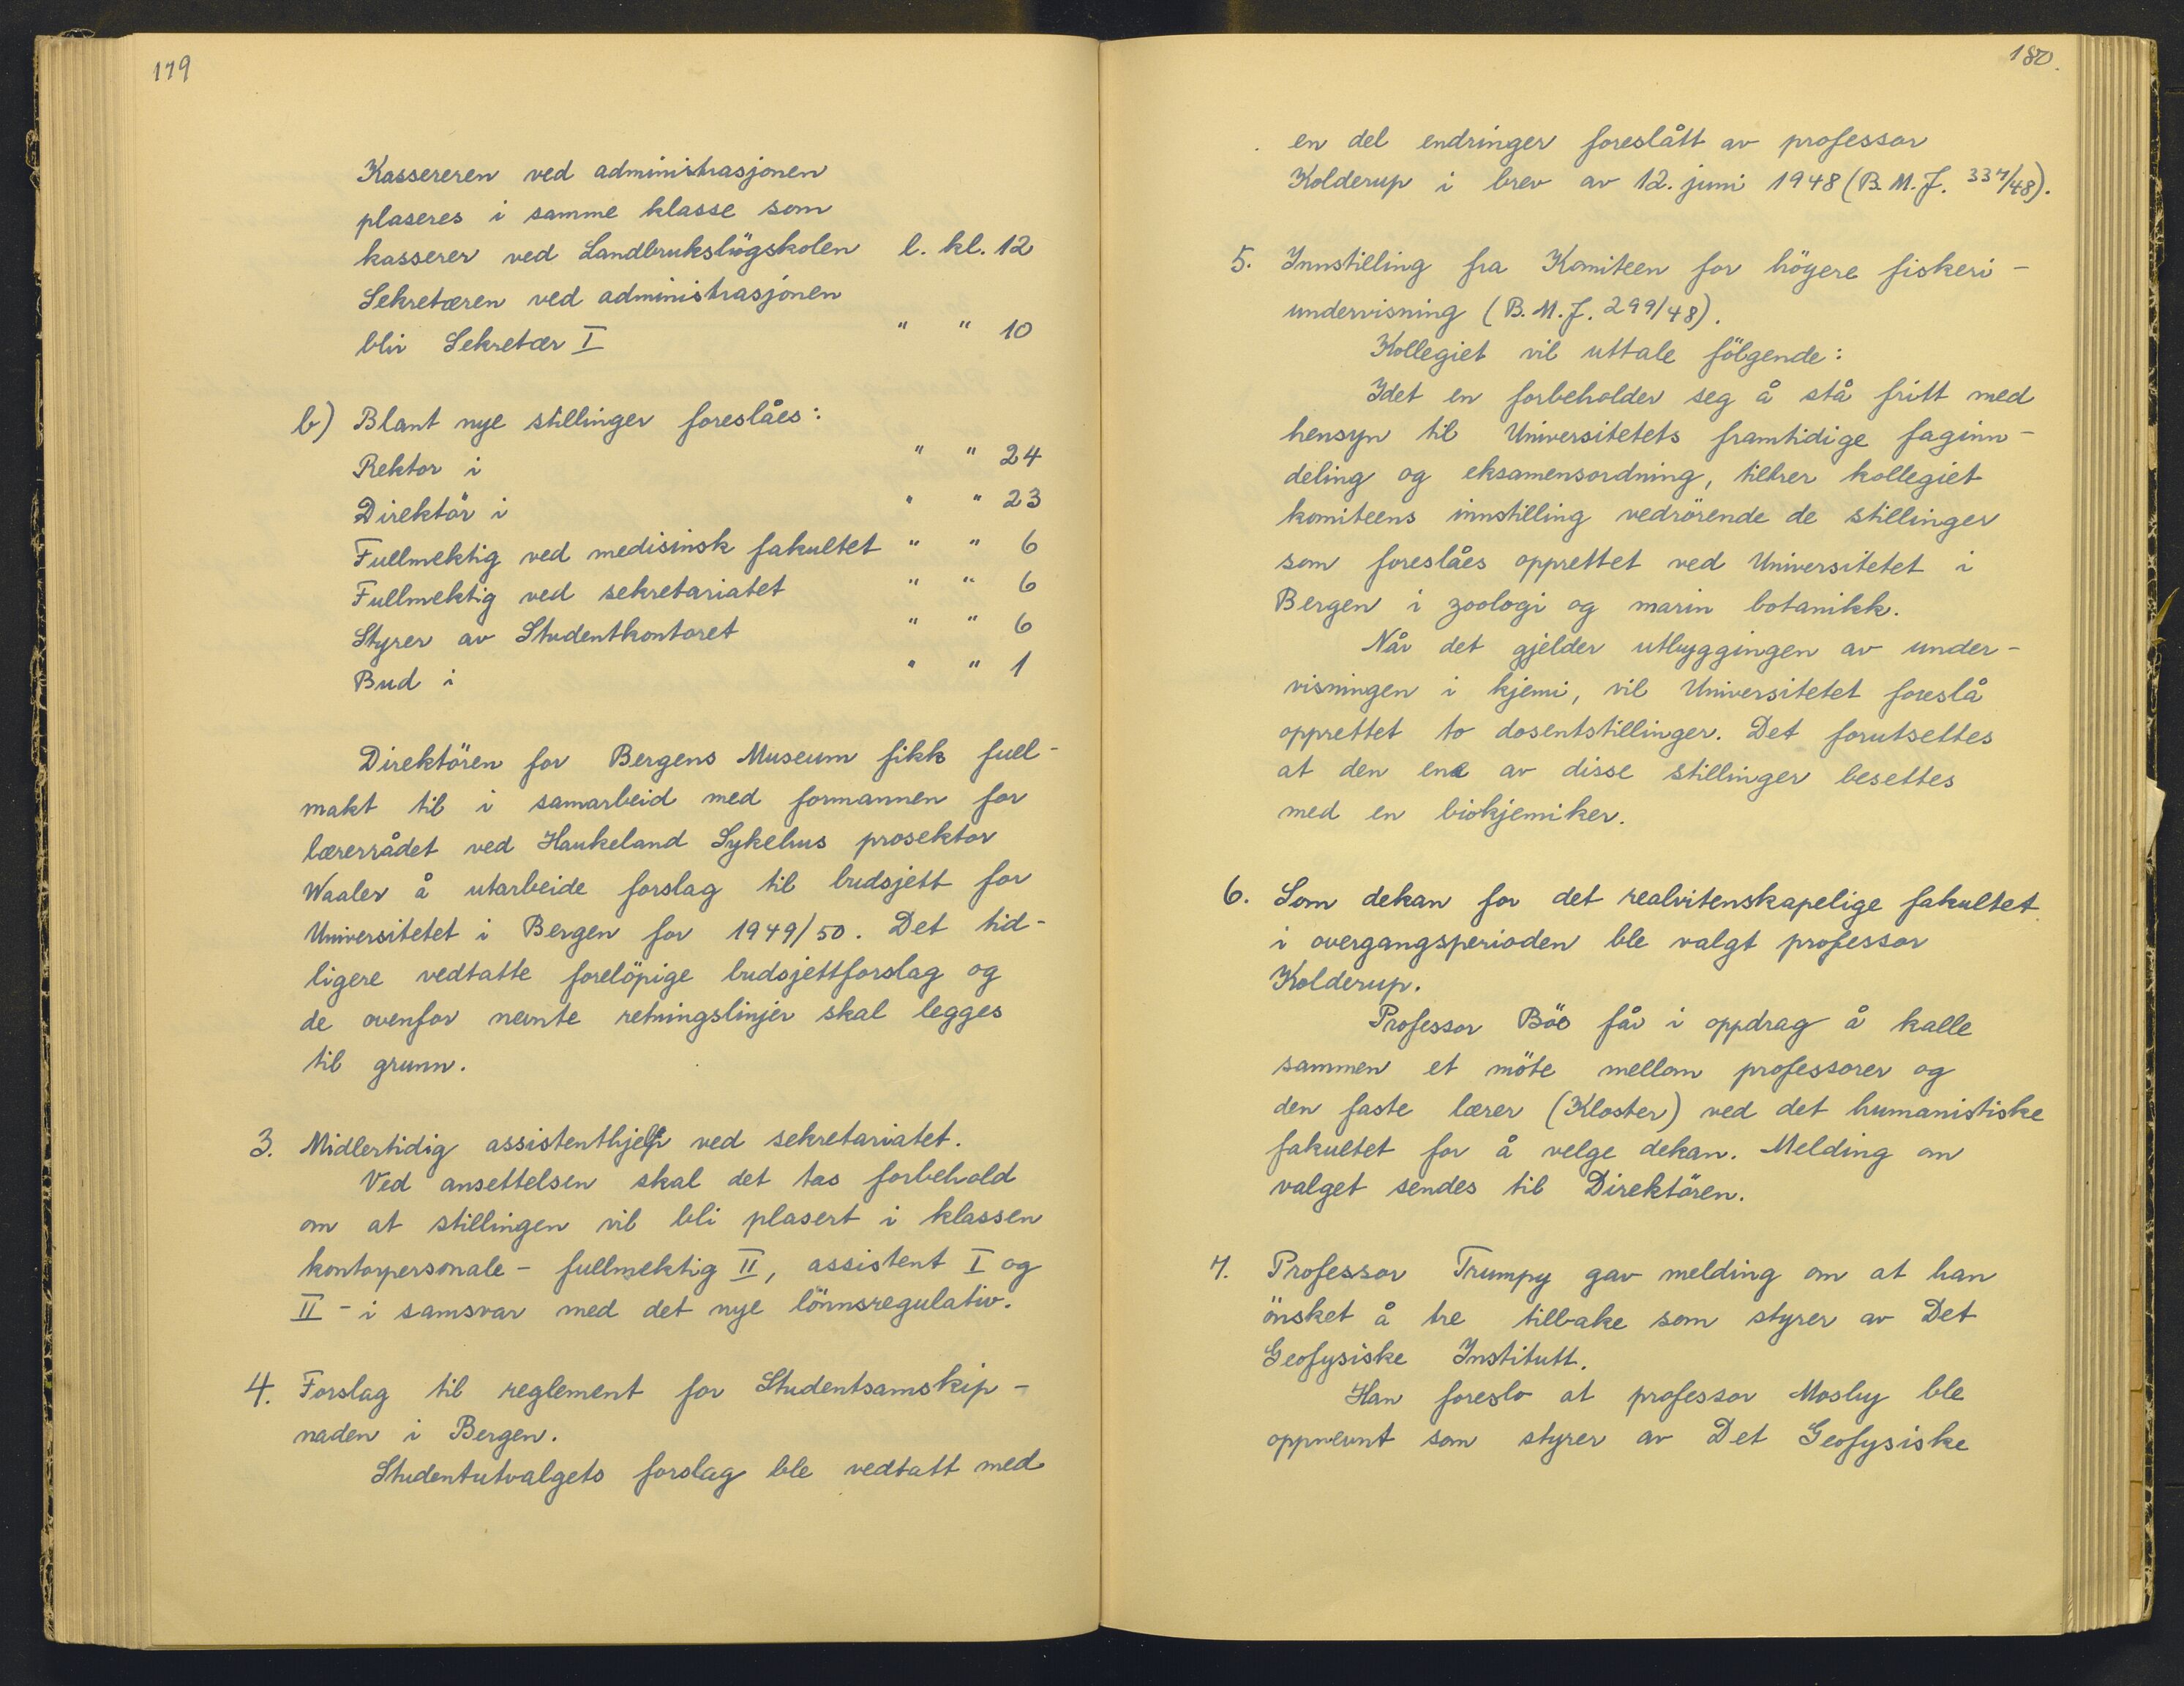 179
Kassereren ved administrasjonen
plaseres i samme klasse som
kasserer ved Landbrukshögskolen l. kl. 12
Sekretæren ved administrasjonen
bli Sekretær I " " 10
b) Blant nye stillinger foreslåes:
Rektor i " " 24
Direktör i " " 23
Fullmektig ved medisinsk fakultet " " 6
Fullmektig ved sekretariatet " " 6
Styrer av Studentkontoret " " 6
Bud i " " 1
Direktören for Bergens Museum fikk full-
makt til i samarbeid med formannen for
lærerrådet ved Haukeland Sykehus prosektor
Waaler å utarbeide forslag til budsjett for
Universitetet i Bergen for 1949/50. Det tid-
ligere vedtatte forelöpige budsjettforslag og
de ovenfor nevnte retningslinjer skal legges
til grunn.
3. Midlertidig assistenthjelp ved sekretariatet.
Ved ansettelsen skal det tas forbehold
om at stillingen vil bli plasert i klassen
kontorpersonale - fullmektig II, assistent I og
II - i samsvar med det nye lönnsregulativ.
4. Forslag til reglement for Studentsamskip-
naden i Bergen.
Studentutvalgets forslag ble vedtatt med
180.
en del endringer foreslått av professor
Kolderup i brev av 12. juni 1948 (B.M.J. 337/48).
5. Innstilling fra Komiteen for högere fiskeri-
undervisning (B.M.J. 299/48).
Kollegiet vil uttale fölgende:
Idet en forbeholder seg å stå fritt med
hensyn til Universitetets framtidige faginn-
deling og eksamensordning, tiltrer kollegiet
komiteens innstilling vedrörende de stillinger
som foreslåes opprettet ved Universitetet i
Bergen i zoologi og marin botanikk.
Når det gjelder utbyggingen av under-
visningen i kjemi, vil Universitetet foreslå
opprettet to dosentstillinger. Det forutsettes
at den ene av disse stillinger besettes
med en biokjemiker.
6. Som dekan for det realvitenskapelige fakultet
i overgangsperioden ble valgt professor
Kolderup.
Professor Böe får i oppdrag å kalle
sammen et möte mellom professorer og
den faste lærer (Kloster) ved det humanistiske
fakultet for å velge dekan. Melding om
valget sendes til Direktören.
7. Professor Trumpy gav melding om at han
önsket å tre tilbake som styrer av Det
Geofysiske Institutt.
Han foreslo at professor Mosby ble
oppnevnt som styrer av Det Geofysiske